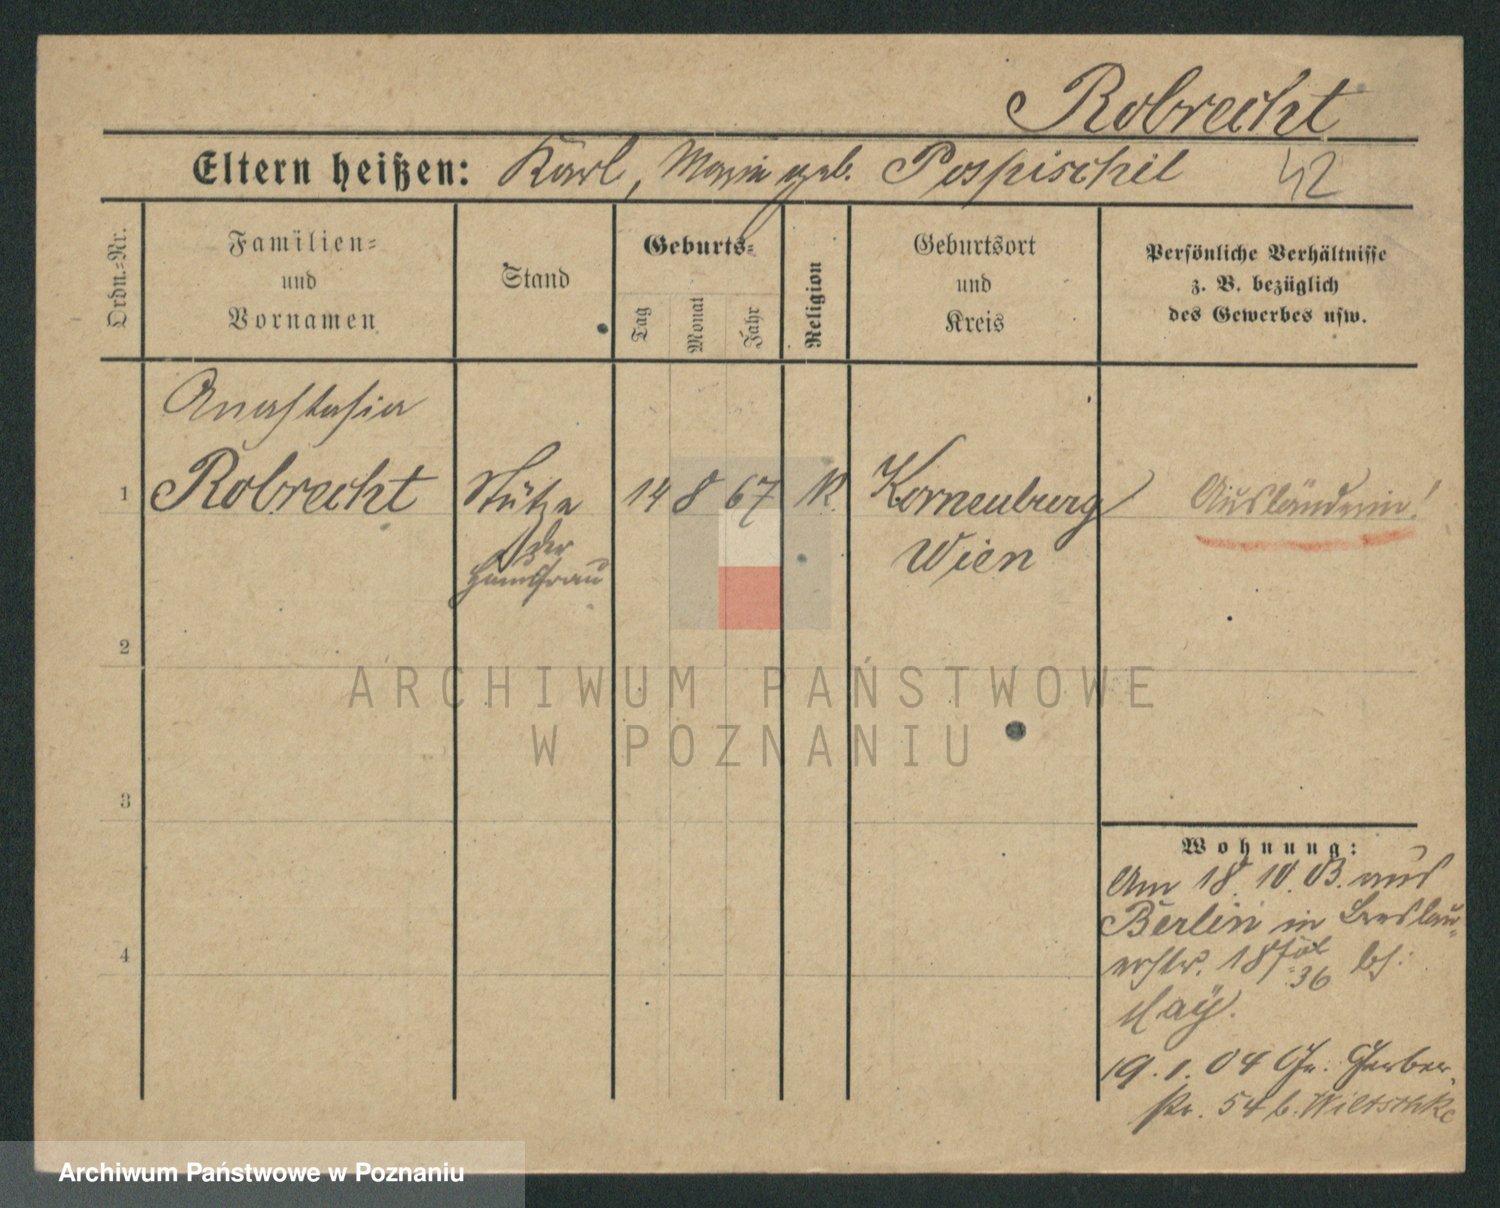 Robrecht
Eltern heißen: Karl, Maria geb. Pospischil
42
Ordn.=Nr.
Familien=
und
Vornamen
Stand
Geburts=
Tag
Monat
Jahr
Religion
Geburtsort
und
Kreis
Persönliche Verhältnisse
z. B. bezüglich
des Gewerbes usw.
Anastasia
1 Robrecht Stütze 14 8 67 K. Korneuburg Ausländerin!
der
Hausfrau
Wien
2
3
4
ARCHIWUM PAŃSTWOWE
W POZNANIU
Wohnung:
Am 18.10.03. aus
Berlin in Breslau=
erstr. 18 bs:
May.
19.1.04 Gr. Gerber
str. 54 b. Wiltschke
Archiwum Państwowe w Poznaniu